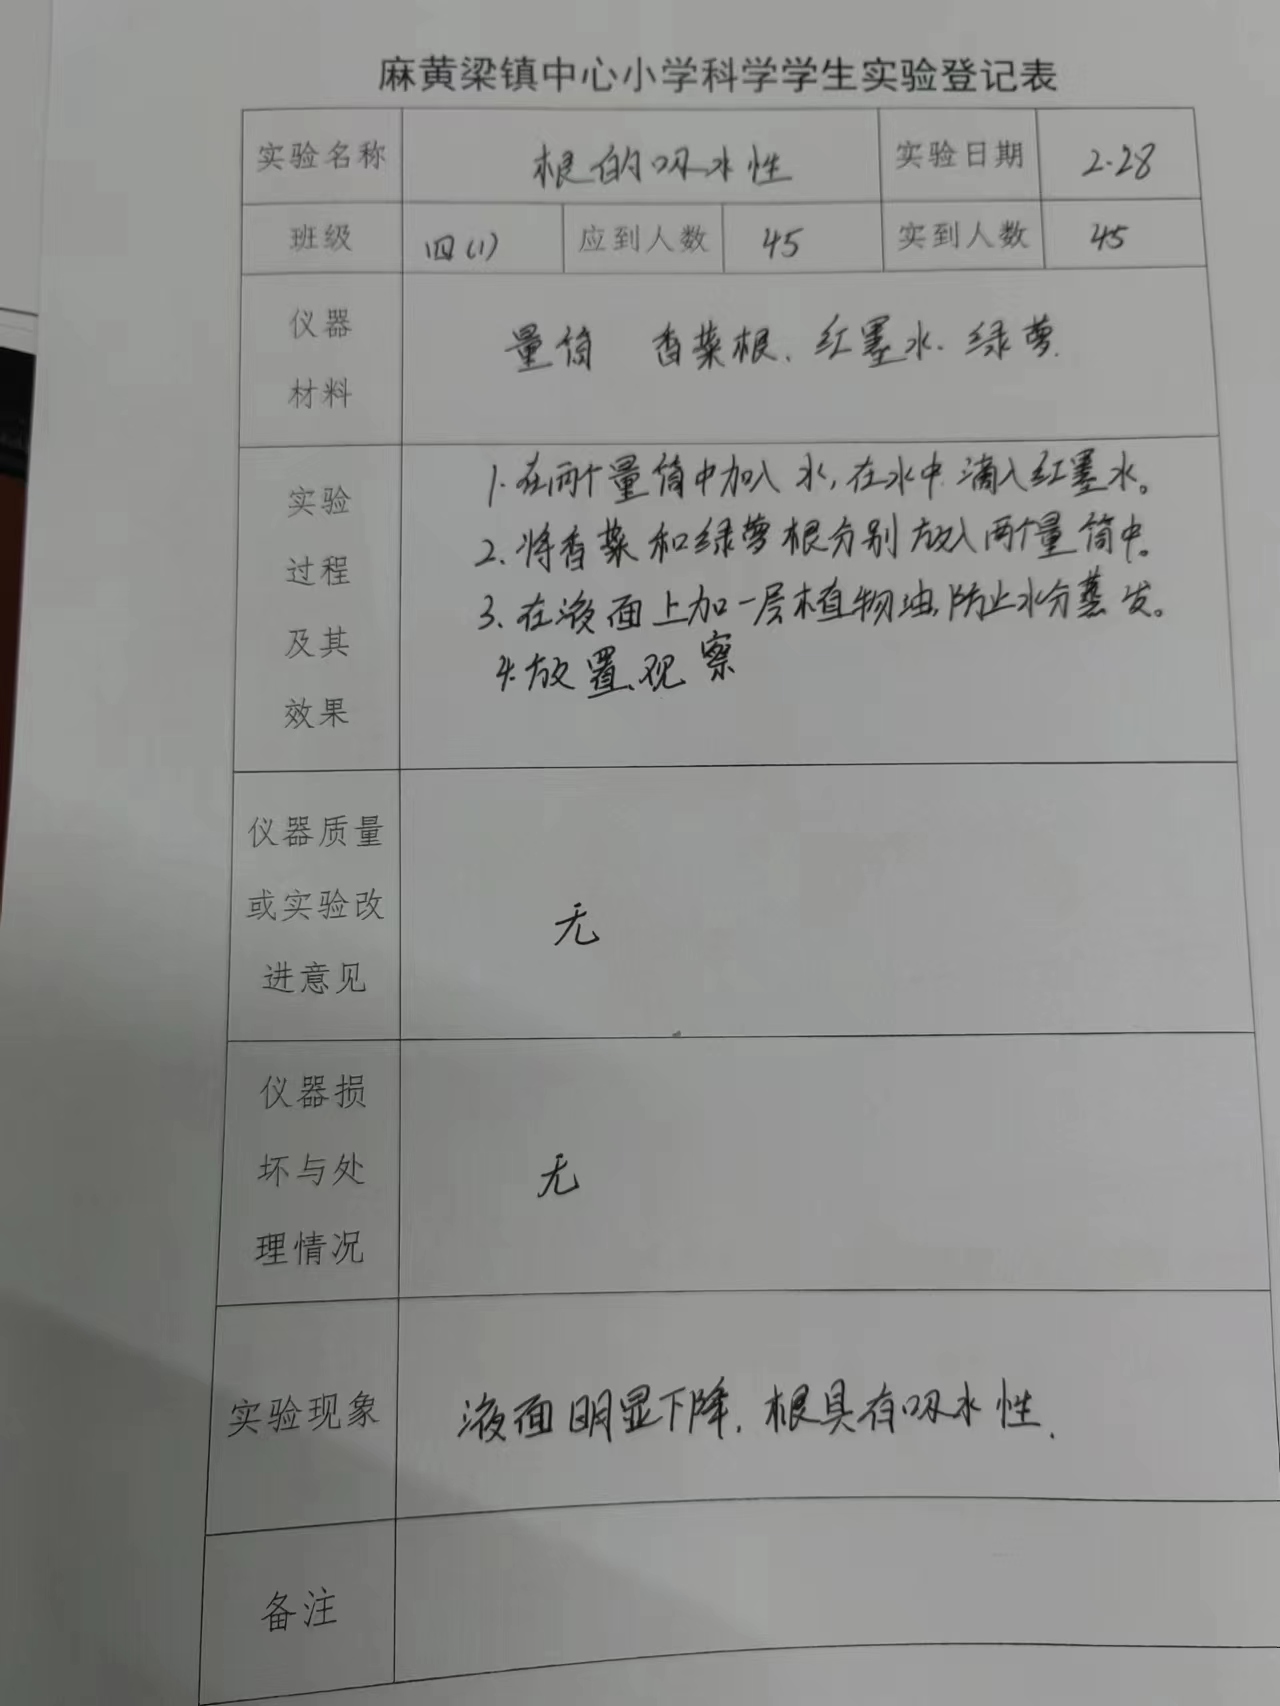 麻黄梁镇中心小学科学学生实验登记表
实验名称 根的吸水性 实验日期 2.28
班级 四(1) 应到人数 45 实到人数 45
仪器
材料
量筒 香菜根、红墨水、绿萝.
实验
过程
及其
效果
1.在两个量筒中加入水,在水中滴入红墨水。
2.将香菜和绿萝根分别放入两个量筒中。
3.在液面上加一层植物油,防止水分蒸发。
4.放置、观察
仪器质量
或实验改
进意见
无
仪器损
坏与处
理情况
无
实验现象 液面明显下降,根具有吸水性.
备注